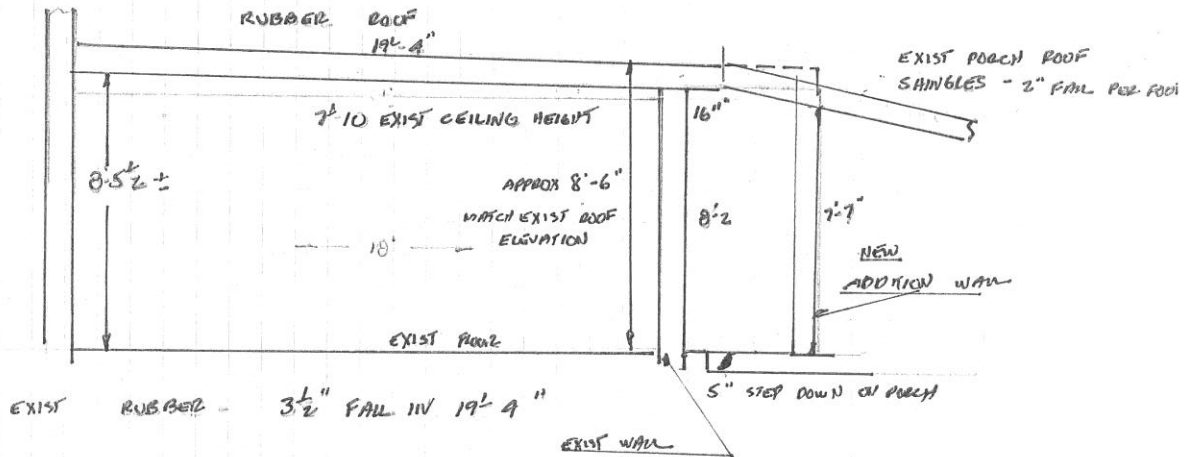 RUBBER ROOF
19'-4"
EXIST PORCH ROOF
SHINGLES - 2" FALL PER FOOT
7'-10 EXIST CEILING HEIGHT
16"
8'-5½ ±
APPROX 8'-6"
MATCH EXIST ROOF
ELEVATION
8'-2
7'-7"
18'
NEW
ADDITION WALL
EXIST FLOOR
5" STEP DOWN ON PORCH
EXIST RUBBER - 3½" FALL IN 19'-4"
EXIST WALL